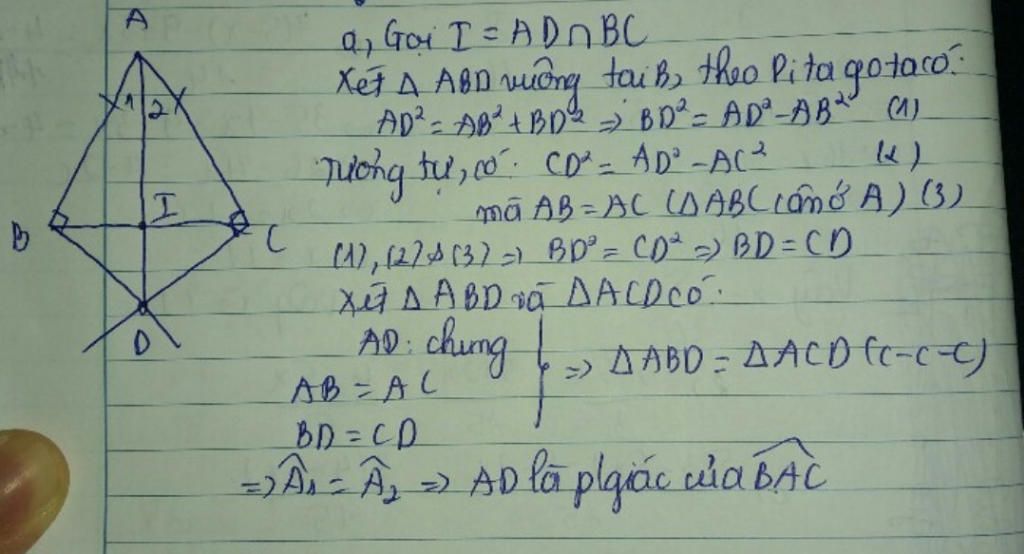 A
1 2
I
B
C
D
a, Gọi I = AD∩BC
Xét Δ ABD vuông tại B, theo Pitago ta có:
AD² = AB² + BD² ⇒ BD² = AD² - AB² (1)
Tương tự, có: CD² = AD² - AC² (2)
mà AB = AC (ΔABC cân ở A) (3)
(1), (2) & (3) ⇒ BD² = CD² ⇒ BD = CD
Xét Δ ABD và ΔACD có:
AD: chung
AB = AC
⇒ ΔABD = ΔACD (c-c-c)
BD = CD
⇒ Â₁ = Â₂ ⇒ AD là p/giác của B̂AC